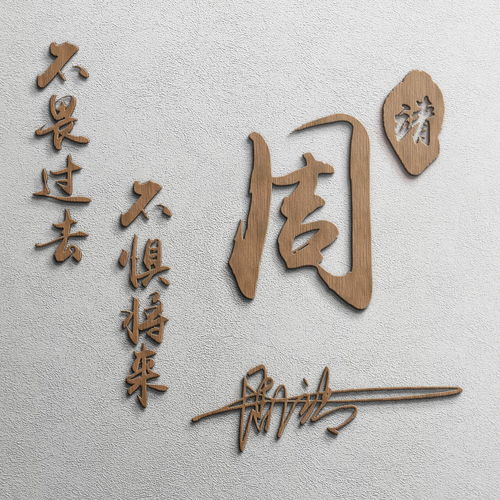 不畏过去
不惧将来
周
靖
周靖